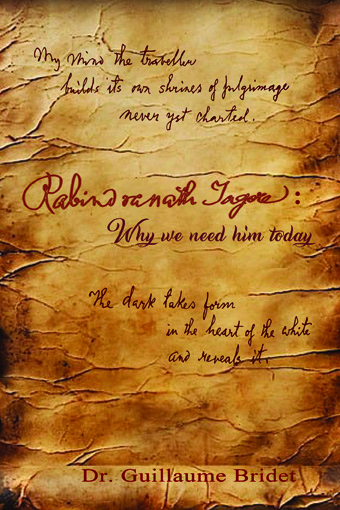 My mind the traveller
builds its own shrines of pilgrimage
never yet charted.
Rabindranath Tagore :
Why we need him today
The dark takes form
in the heart of the white
and reveals it.
Dr. Guillaume Bridet